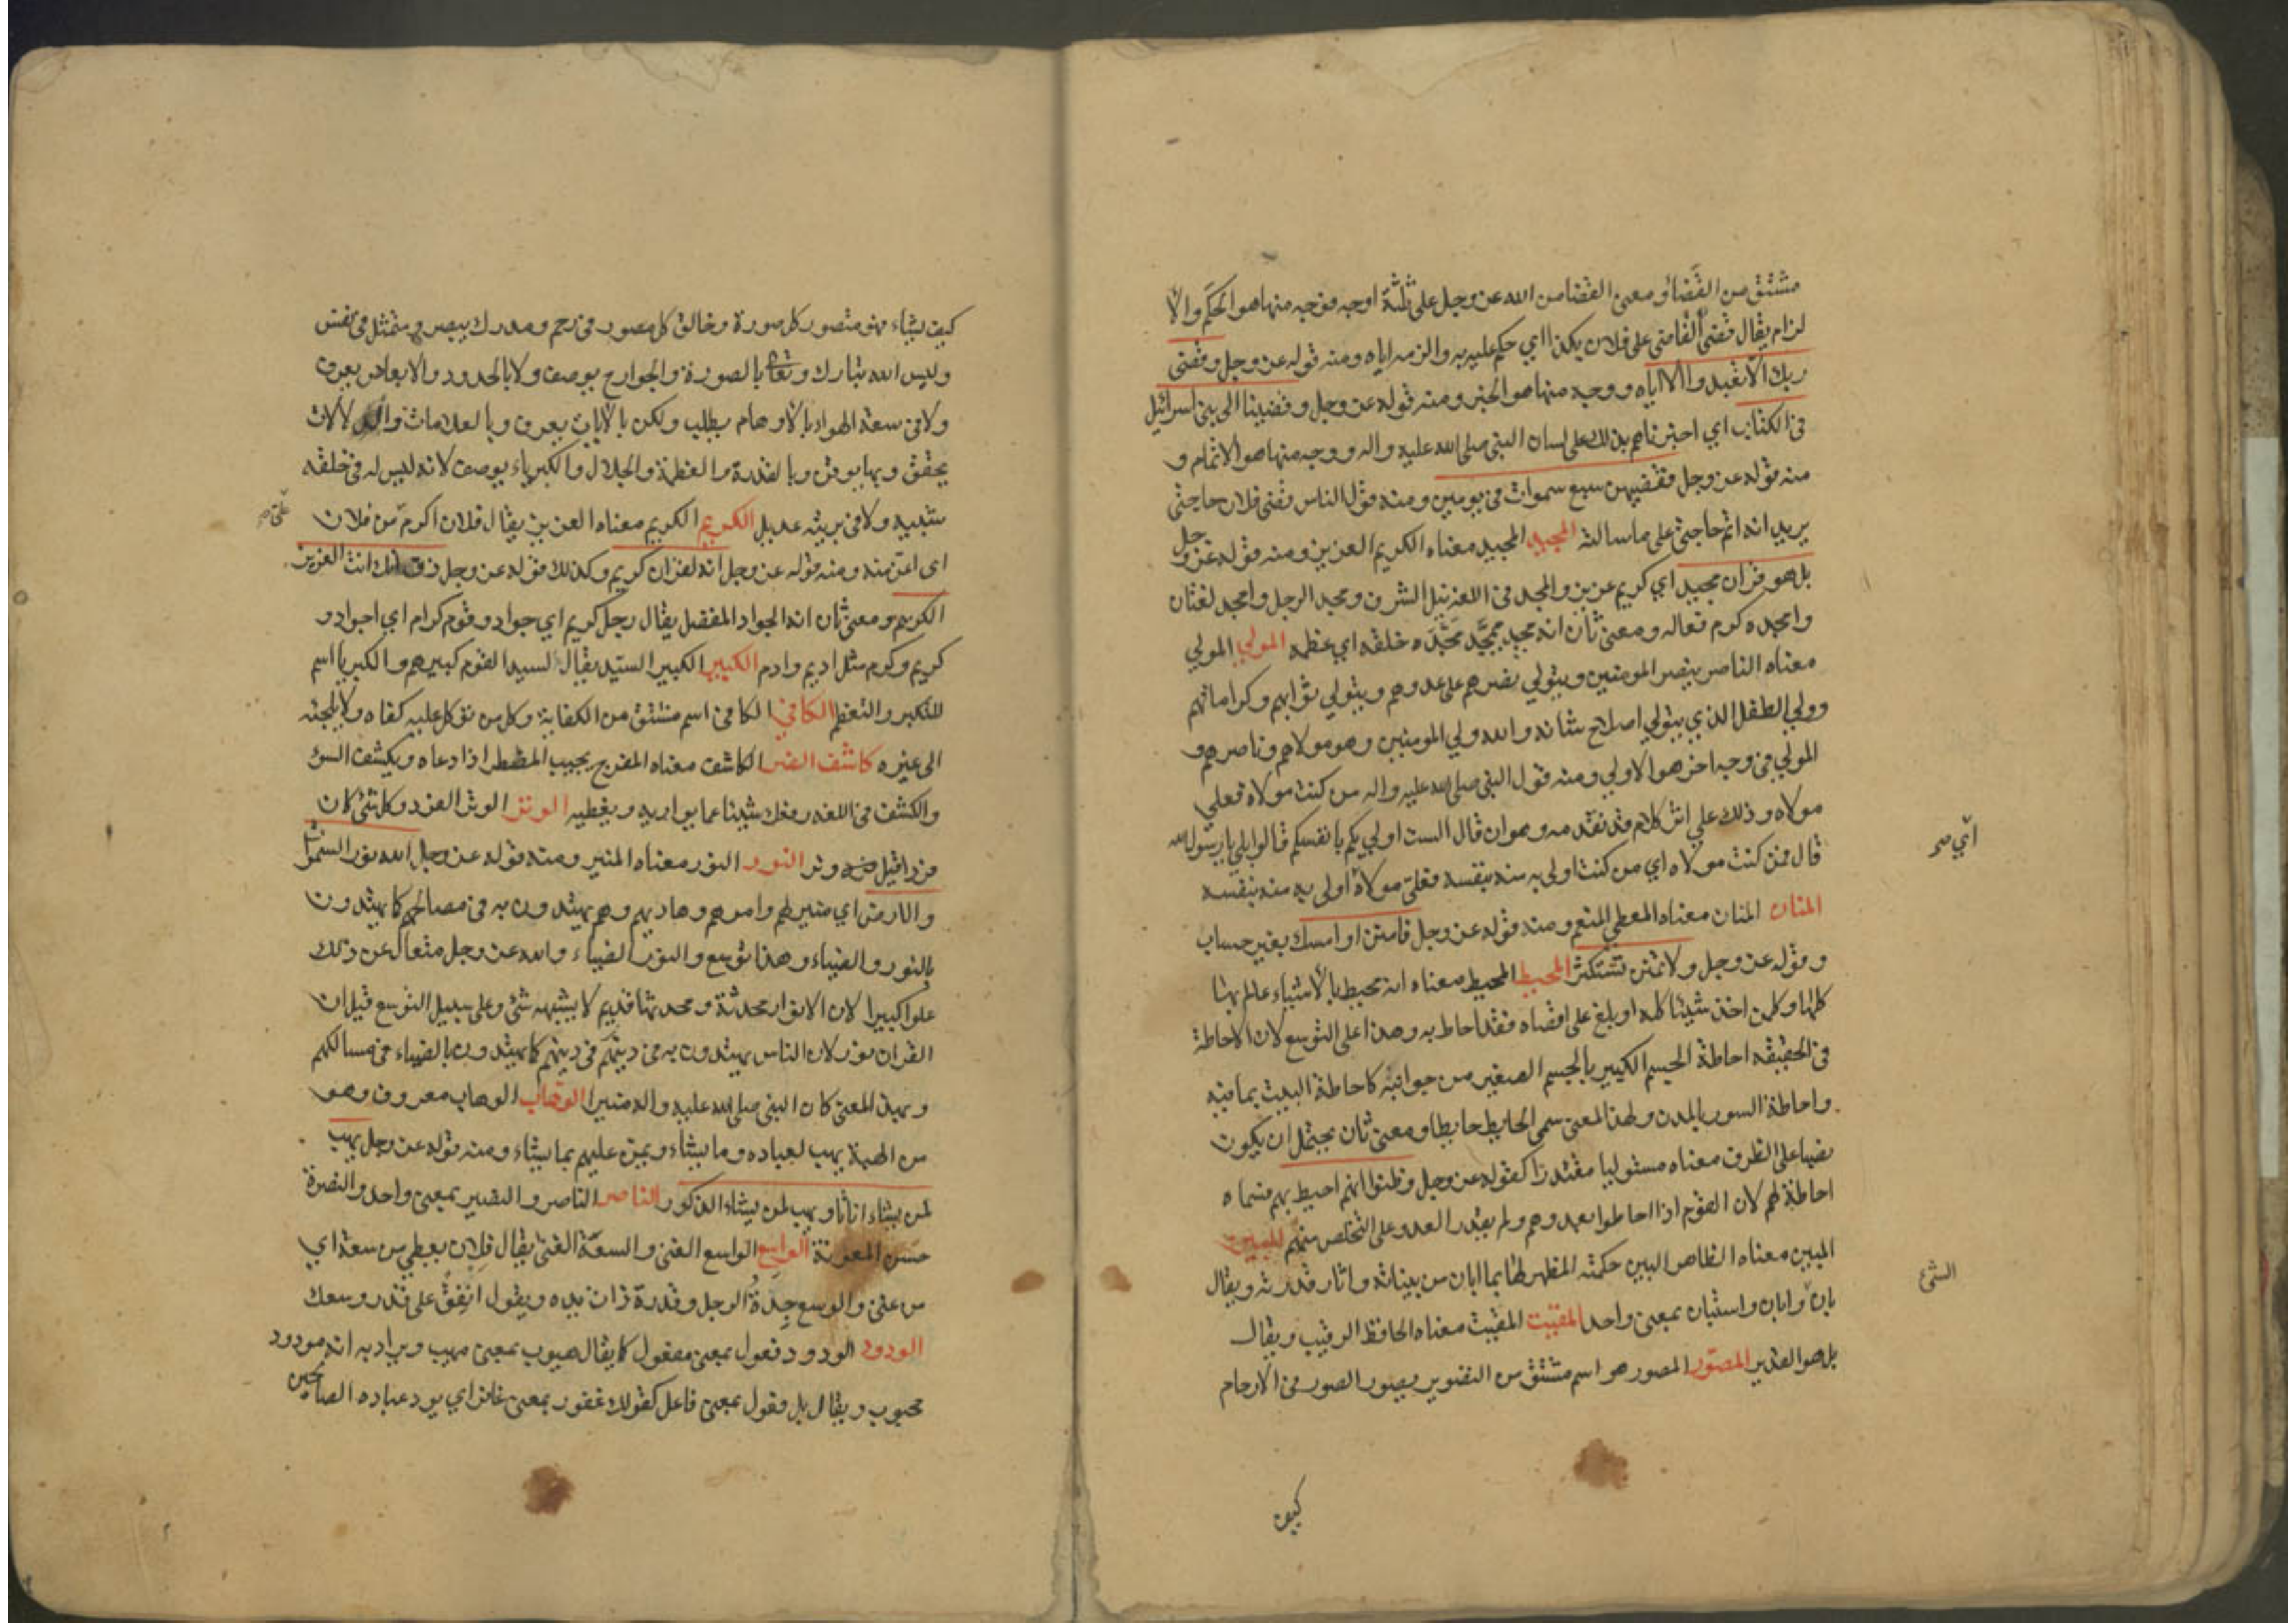 مشتق من القضا و معنى القضا من الله عز وجل على ثلثة اوجه فوجه منها هو الحكم والا
لزام يقال قضى القاضي على فلان بكذا اي حكم عليه به والزمه اياه ومنه قوله عز وجل وقضى
ربك الا تعبدوا الا اياه ووجه منها هو الخبر ومنه قوله عز وجل وقضينا الى بني اسرائيل
في الكتاب اي اخبرناهم بذلك على لسان النبي صلى الله عليه واله ووجه منها هو الاتمام و
منه قوله عز وجل فقضيهن سبع سموات في يومين ومنه قول الناس قضى فلان حاجتي
يريد انه اتم حاجتي على ما سالته المجيد المجيد معناه الكريم العزيز ومنه قوله عز وجل
بل هو قران مجيد اي كريم عزيز والمجد في اللغة نيل الشرف ومجد الرجل وامجد لغتان
وامجده كرم فعاله ومعنى ثان انه مجيد ممجد مجده خلقه اي عظمه المولي المولي
معناه الناصر ينصر المومنين ويتولي نصرهم على عدوهم ويتولي ثوابهم وكراماتهم
وولي الطفل الذي يتولي اصلاح شانه والله ولي المومنين وهو مولاهم وناصرهم و
المولي في وجه اخر هو الاولي ومنه قول النبي صلى الله عليه واله من كنت مولاه فعلي
مولاه وذلك علي اثر كلام قد تقدمه وهو ان قال الست اولي بكم بانفسكم قالوا بلي يا رسول الله
قال فمن كنت مولاه اي من كنت اولى به منه بنفسه فعلي مولاه اولى به منه بنفسه
المنان المنان معناه المعطي المنعم ومنه قوله عز وجل فامنن او امسك بغير حساب
وقوله عز وجل ولا تمنن تستكثر المحيط المحيط معناه انه محيط بالاشياء عالم بها
كلها وكل من اخذ شيئا كله او بلغ علي اقصاه فقد احاط به وهذا على التوسع لان الاحاطة
في الحقيقه احاطة الجسم الكبير بالجسم الصغير من جوانبه كاحاطة البيت بما فيه
واحاطة السور بالمدن ولهذا المعنى سمي الحايط حايطا ومعنى ثان يحتمل ان يكون
نصبا على الظرف معناه مستوليا مقتدرا كقوله عز وجل وظنوا انهم احيط بهم فسماه
احاطة لهم لان القوم اذا احاطوا بعدوهم ولم يقدر العدو على التخلص منهم المبين
المبين معناه الظاهر البين حكمته المظهر لها بما ابان من بيناته واثار قدرته ويقال
بان وابان واستبان بمعنى واحد المقيت المقيت معناه الحافظ الرقيب ويقال
بل هو القدير المصور المصور هو اسم مشتق من التصوير يصور الصور في الارحام
كيف
كيف يشاء فهو متصور كل صورة وخالق كل مصور في رحم ومدرك ببصر ومتمثل في نفس
وليس الله تبارك وتعا بالصورة والجوارح يوصف ولا بالحدود والابعاد يعرف
ولا في سعة الهواء بالاوهام يطلب ولكن بالايات يعرف وبالعلامات والدلالات
يحقق وبها يوقن وبالقدرة والعظمة والجلال والكبرياء يوصف لانه ليس له في خلقه
شبيه ولا في بريته عديل الكريم الكريم معناه العزيز يقال فلان اكرم من فلان
اى اعز منه ومنه قوله عز وجل انه لقران كريم وكذلك قوله عز وجل ذق انك انت العزيز
الكريم ومعنى ثان انه الجواد المفضل يقال رجل كريم اي جواد وقوم كرام اي اجواد و
كريم وكرم مثل اديم وادم الكبير الكبير السيد يقال لسيد القوم كبيرهم والكبريا اسم
للتكبر والتعظم الكافي الكافي اسم مشتق من الكفاية وكل من توكل عليه كفاه ولا يلجئه
الى غيره كاشف الضر الكاشف معناه المفرج يجيب المضطر اذا دعاه ويكشف السوء
والكشف في اللغه رفعك شيئا عما يواريه ويغطيه الوتر الوتر الفرد وكل شئ كان
فردا قيل وتر النور النور معناه المنير ومنه قوله عز وجل الله نور السموات
والارض اي منير لهم وامرهم وهاديهم وهم يهتدون به في مصالحهم كما يهتدون
بالنور والضياء وهذا توسع والنور الضياء والله عز وجل متعال عن ذلك
علوا كبيرا لان الانوار محدثة ومحدثها قديم لا يشبهه شئ وعلى سبيل التوسع قيل ان
القران نور لان الناس يهتدون به في دينهم في دينهم كما يهتدون بالضياء في مسالكهم
وبهذا المعنى كان النبى صلى الله عليه واله منيرا الوهاب الوهاب معروف وهو
من الهبة يهب لعباده وما يشاء ويمن عليهم بما يشاء ومنه قوله عز وجل يهب
لمن يشاء اناثا ويهب لمن يشاء الذكور الناصر الناصر والنصير بمعنى واحد والنصرة
حسن المعونة الواسع الواسع الغنى والسعة الغنى يقال فلان يعطي من سعة اي
من غنى والوسع جدة الرجل وقدرة ذات يده ويقول انفق على قدر وسعك
الودود الودود فعول بمعنى مفعول كما يقال هيوب بمعنى مهيب ويراد به انه مودود
محبوب ويقال بل فعول بمعنى فاعل كقولك غفور بمعنى غافر اي يود عباده الصالحين